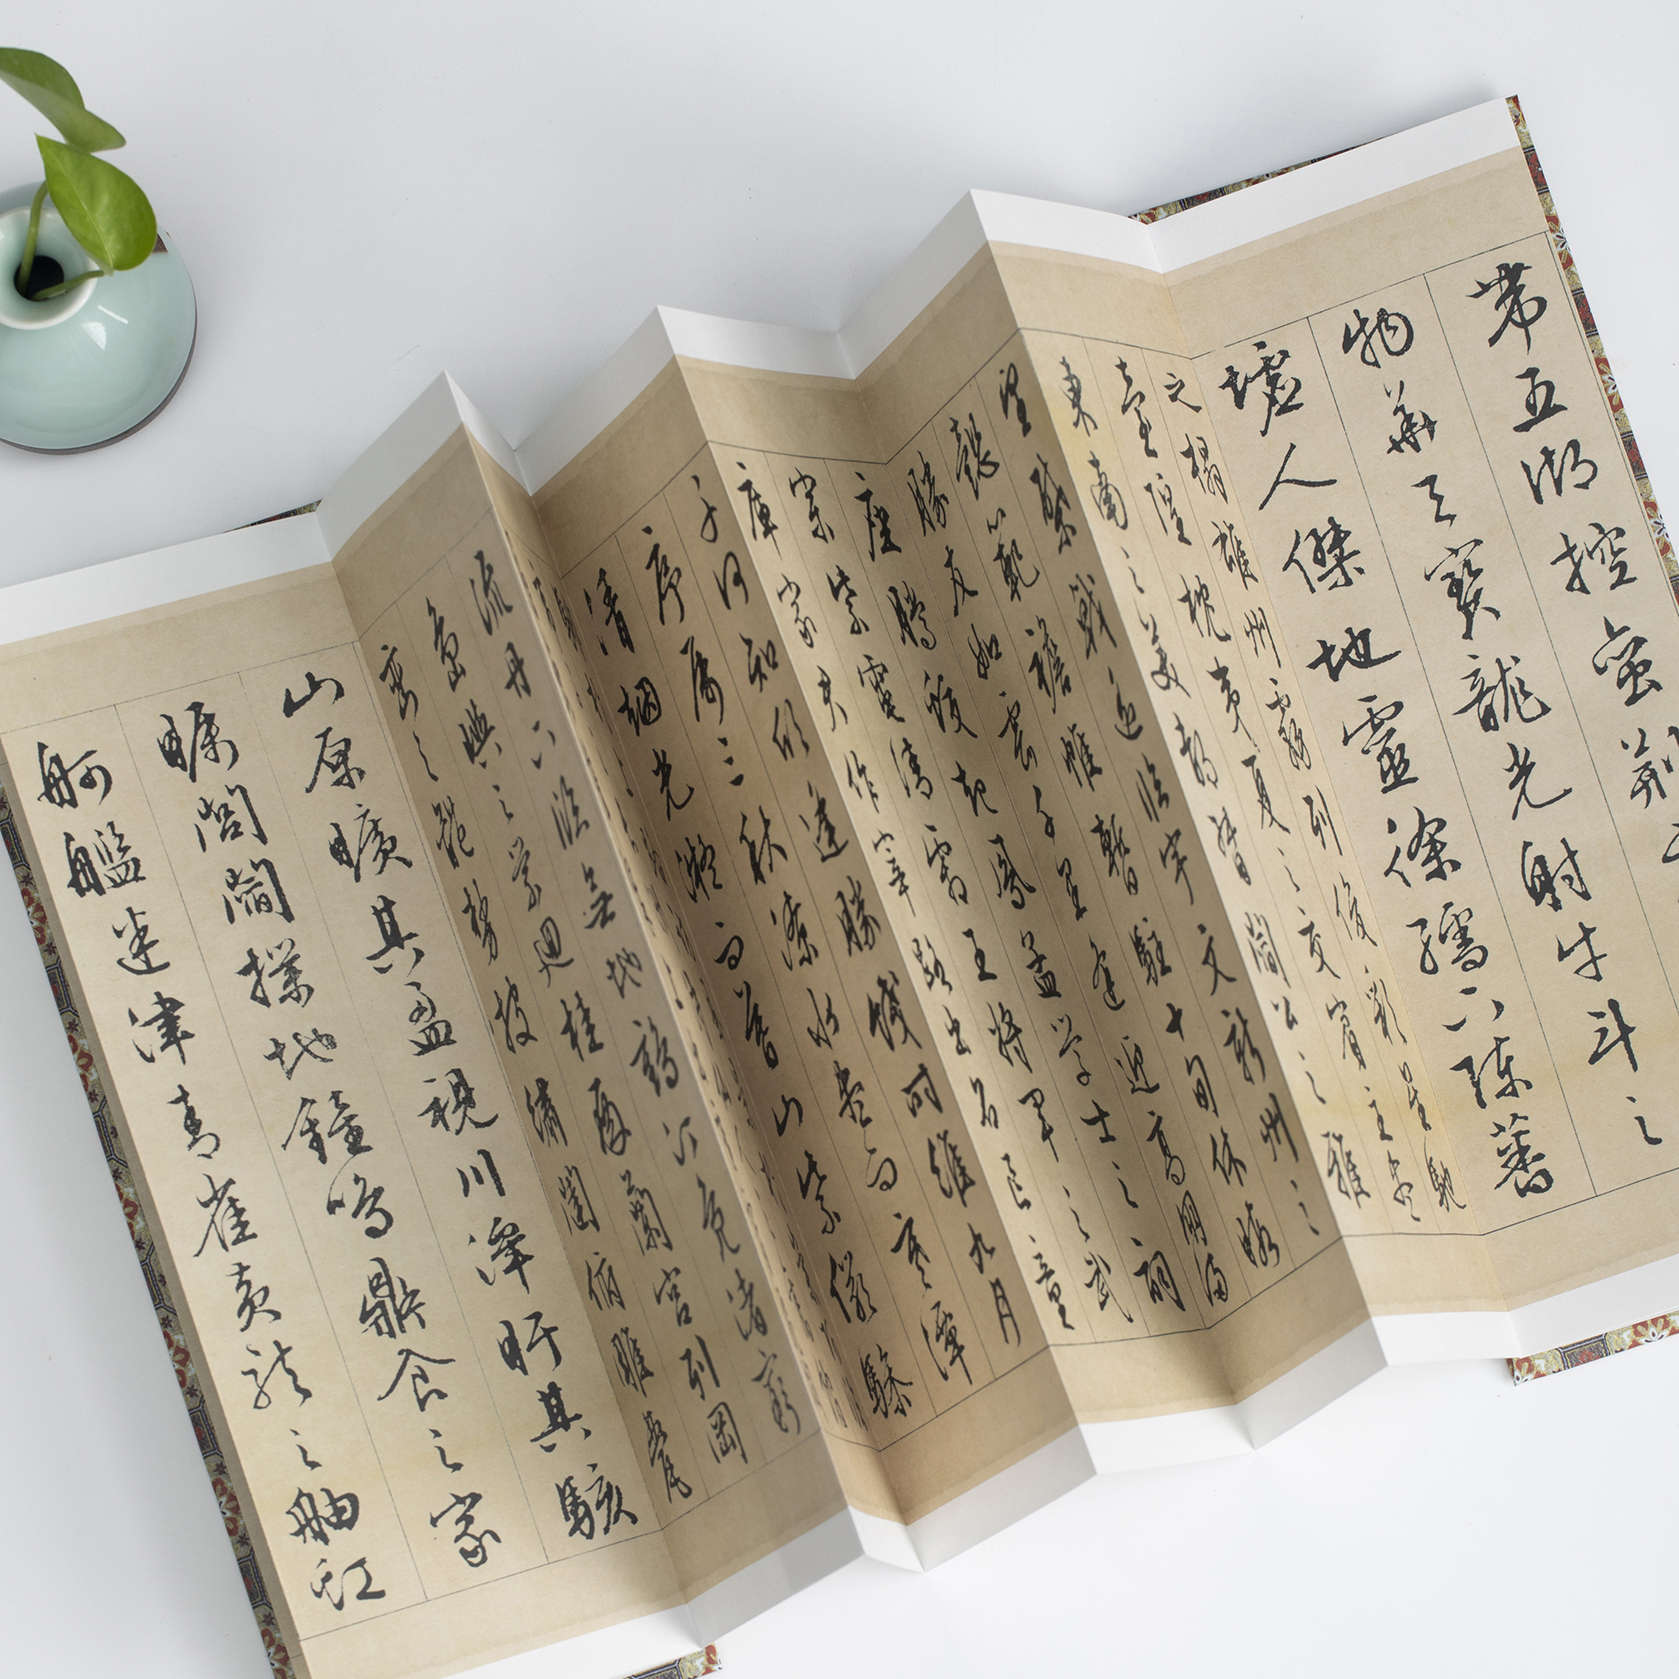 帶五湖控蠻荆
物華天寶龍光射牛斗之
墟人傑地靈徐孺下陳蕃
之榻雄州霧列俊彩星馳
臺隍枕夷夏之交賓主盡
東南之美都督閻公之雅
望棨戟遥臨宇文新州之
懿範襜帷暫駐十旬休暇
勝友如雲千里逢迎高朋滿
座騰蛟起鳳孟學士之詞
宗紫電清霜王將軍之武
庫家君作宰路出名區童
子何知躬逢勝餞時維九月
序屬三秋潦水盡而寒潭
清烟光凝而暮山紫儼驂
流丹下臨無地鶴汀鳧渚窮
島嶼之縈迴桂殿蘭宮列岡
巒之體勢披繡闥俯雕甍
山原曠其盈視川澤盱其駭
矚閭閻撲地鐘鳴鼎食之家
舸艦迷津青雀黄龍之舳虹